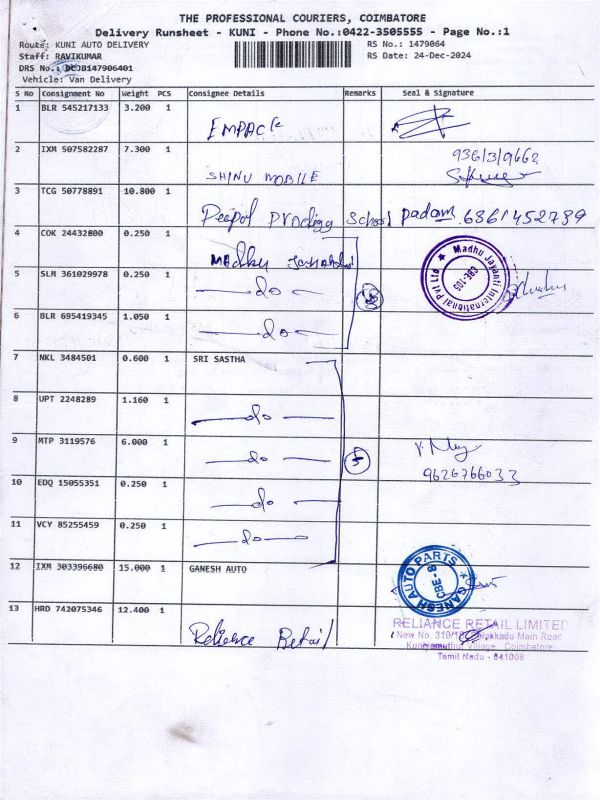 THE PROFESSIONAL COURIERS, COIMBATORE
Delivery Runsheet - KUNI - Phone No.:0422-3505555 - Page No.:1
Route: KUNI AUTO DELIVERY
RS No.: 1479064
Staff: RAVIKUMAR
RS Date: 24-Dec-2024
DRS No.: DCJB147906401
Vehicle: Van Delivery
S No Consignment No Weight PCS Consignee Details Remarks Seal & Signature
1 BLR 545217133 3.200 1 EMPACK
2 IXM 507582287 7.300 1 SHINU MOBILE 936/3/9662
3 TCG 50778891 10.800 1 Peepal Prodigy School padam 6361452789
4 COK 24432800 0.250 1 Madhu Jayanthi
Madhu Jayanti International Pvt Ltd ★ CBE-105
5 SLM 361029978 0.250 1 — do —
6 BLR 695419345 1.050 1 — do —
7 NKL 3484501 0.600 1 SRI SASTHA
8 UPT 2248289 1.160 1 — do —
9 MTP 3119576 6.000 1 — do — 9626766033
10 EDQ 15055351 0.250 1 — do —
11 VCY 85255459 0.250 1 — do —
12 IXM 303396680 15.000 1 GANESH AUTO
★ GANESH AUTO PARTS ★ CBE-8
13 HRD 742075346 12.400 1 Reliance Retail
RELIANCE RETAIL LIMITED
New No. 310/ Main Road
Village, Coimbatore
Tamil Nadu - 641008